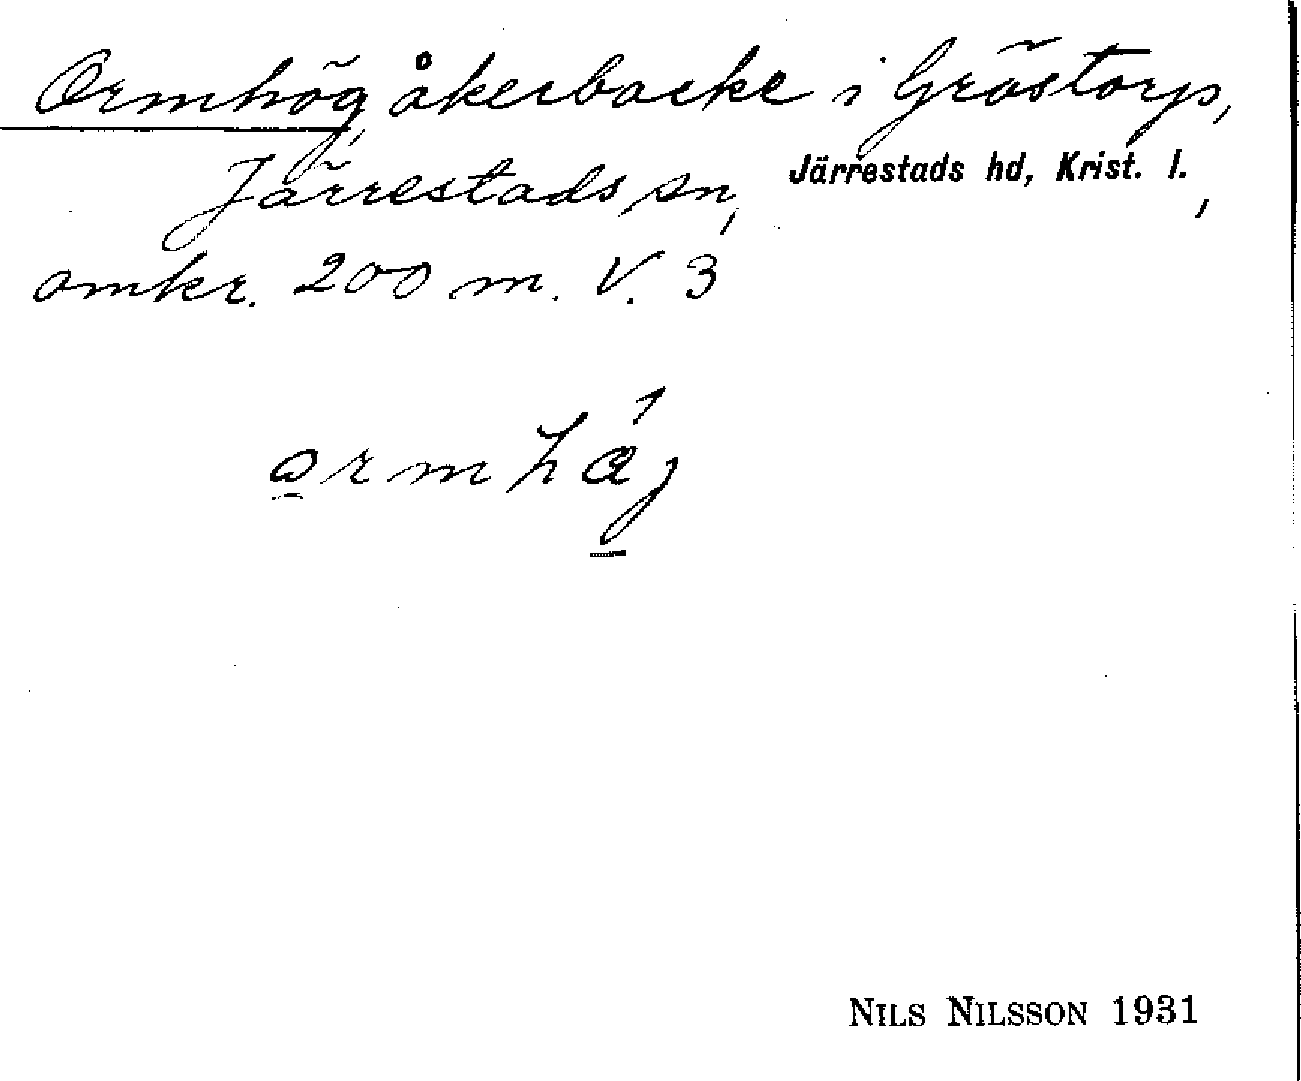 Ormhög, åkerbacke i Gröstorp,
Järrestads sn, Järrestads hd, Krist. l.,
omkr. 200 m. V. 3
ormhǿj
NILS NILSSON 1931